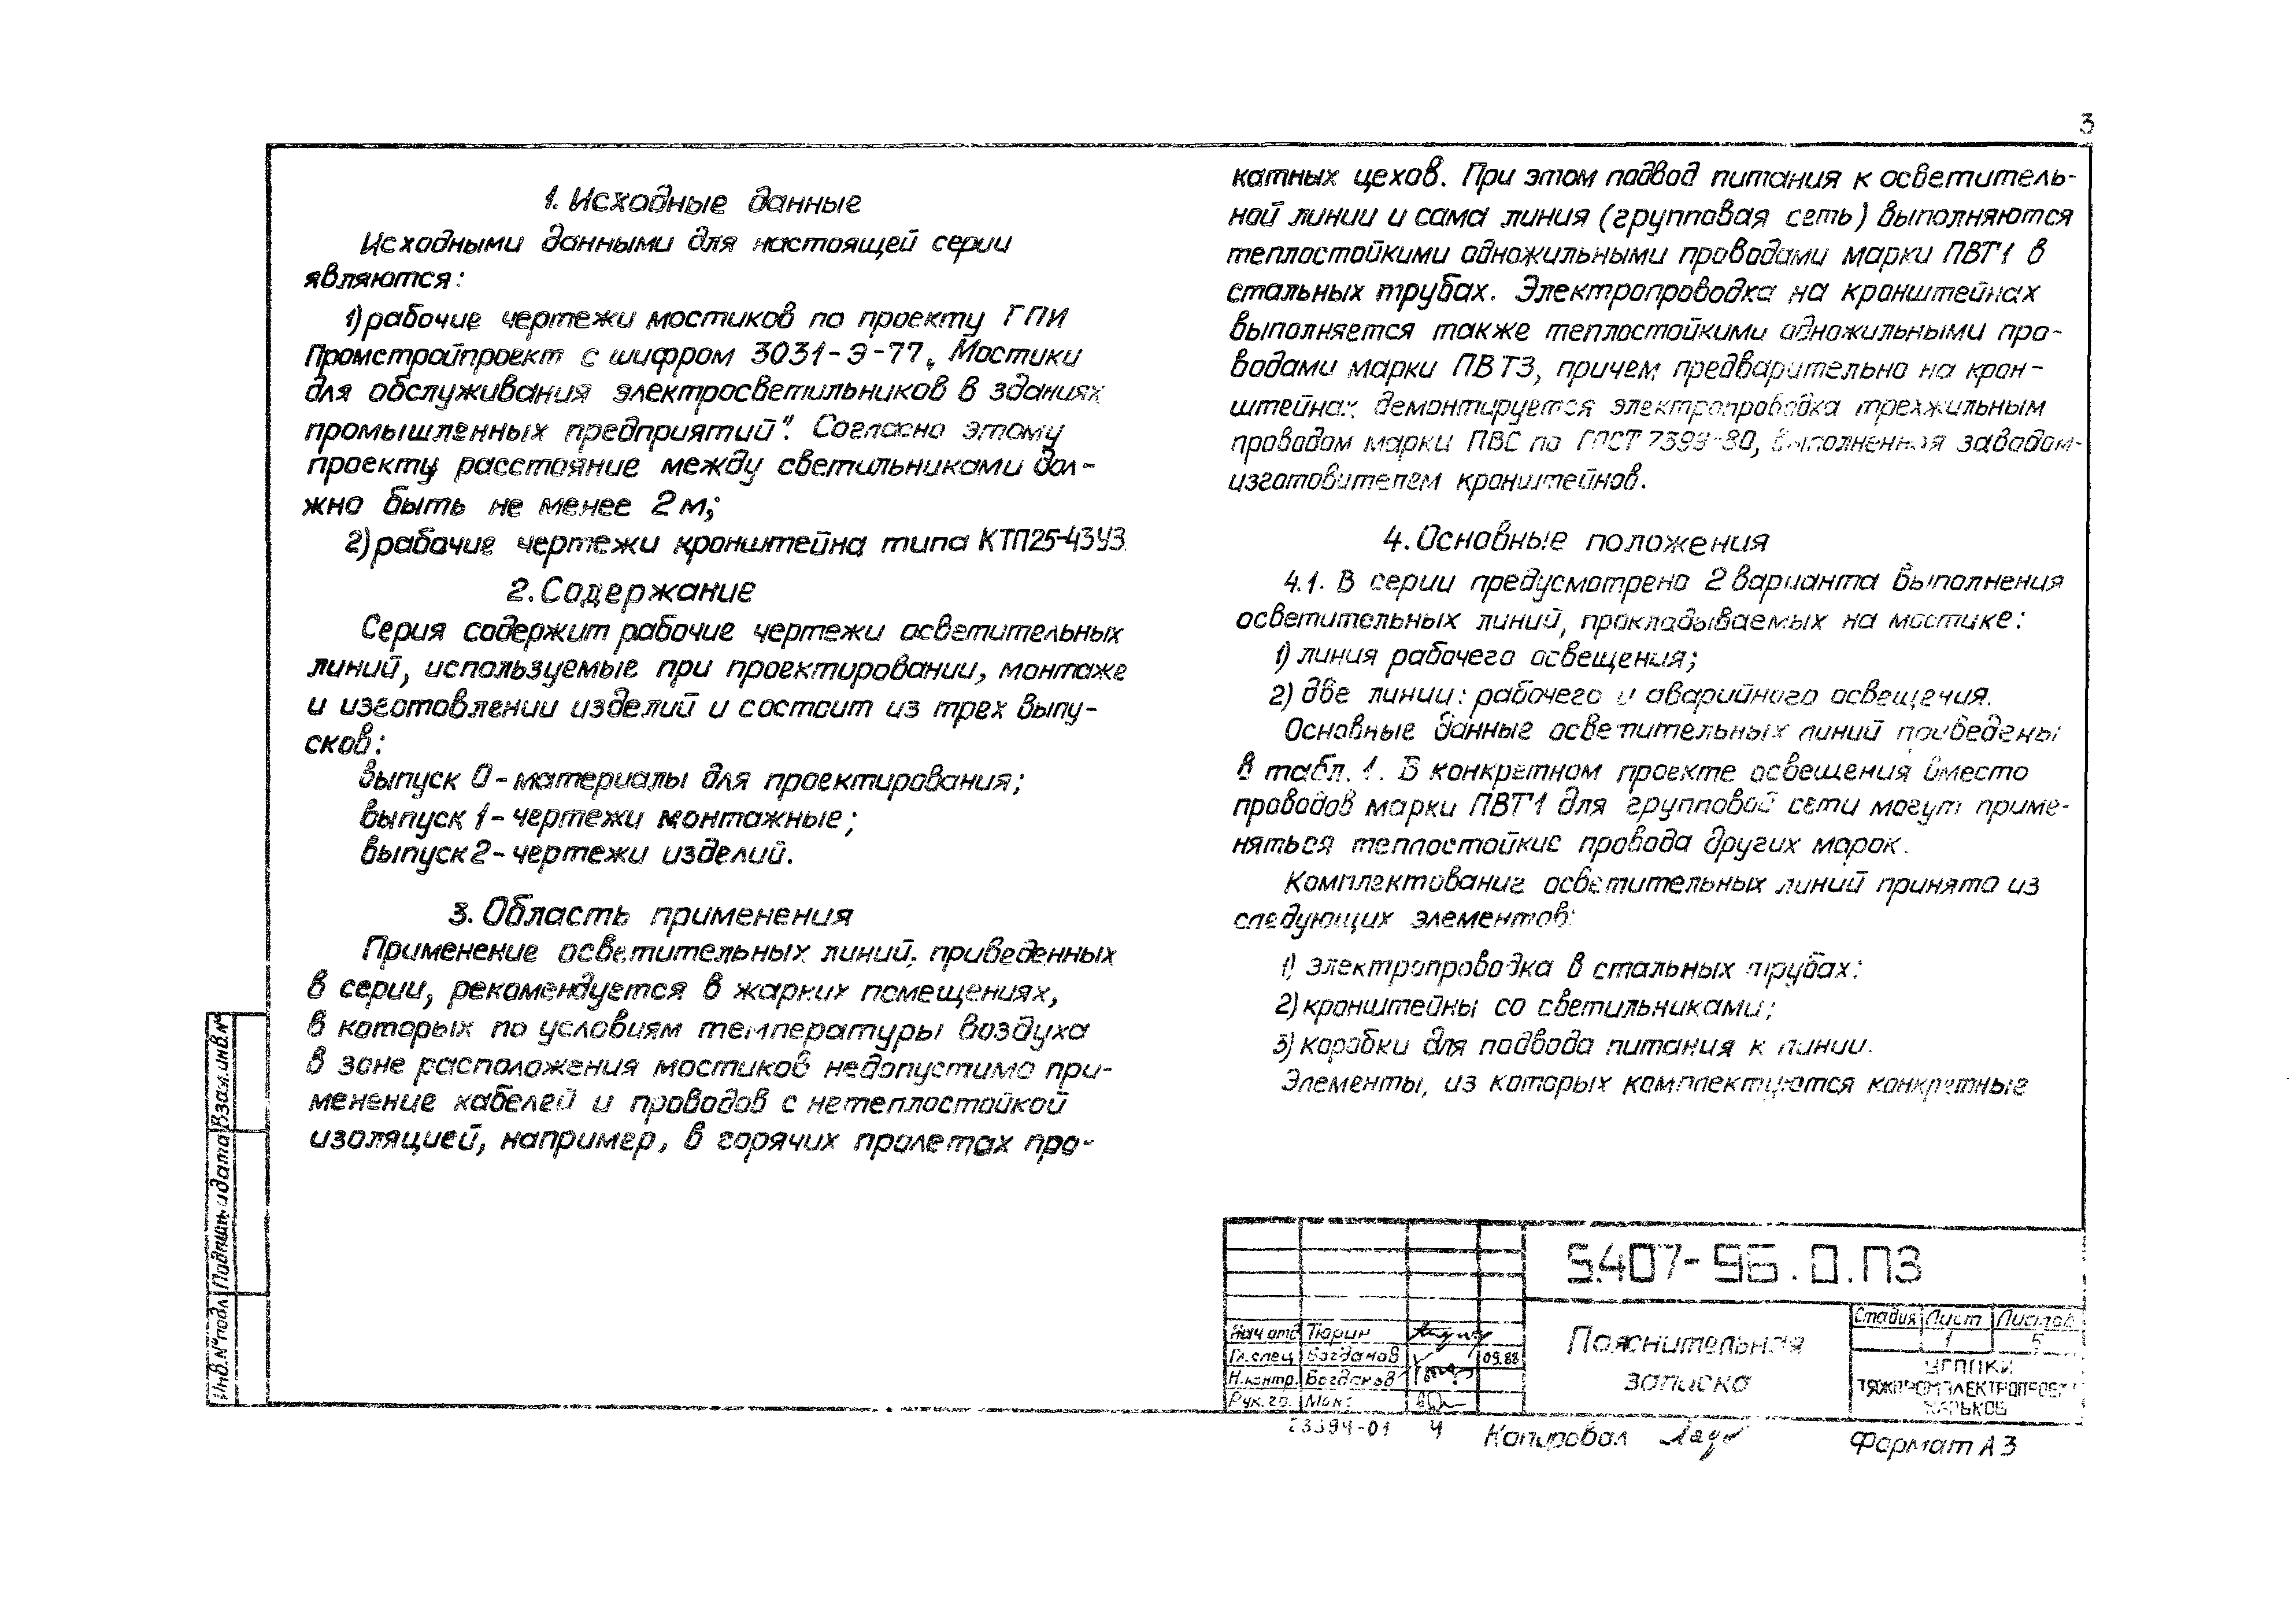 3
1. Исходные данные
Исходными данными для настоящей серии
являются:
1) рабочие чертежи мостиков по проекту ГПИ
Промстройпроект с шифром 3031-Э-77 „Мостики
для обслуживания электросветильников в зданиях
промышленных предприятий". Согласно этому
проекту расстояние между светильниками дол-
жно быть не менее 2м;
2) рабочие чертежи кронштейна типа КТП25-43У3.
2. Содержание
Серия содержит рабочие чертежи осветительных
линий, используемые при проектировании, монтаже
и изготовлении изделий и состоит из трех выпу-
сков:
выпуск 0 - материалы для проектирования;
выпуск 1 - чертежи монтажные;
выпуск 2 - чертежи изделий.
3. Область применения
Применение осветительных линий, приведенных
в серии, рекомендуется в жарких помещениях,
в которых по условиям температуры воздуха
в зоне расположения мостиков недопустимо при-
менение кабелей и проводов с нетеплостойкой
изоляцией, например, в горячих пролетах про-
катных цехов. При этом подвод питания к осветитель-
ной линии и сама линия (групповая сеть) выполняются
теплостойкими одножильными проводами марки ПВТ1 в
стальных трубах. Электропроводка на кронштейнах
выполняется также теплостойкими одножильными про-
водами марки ПВТ3, причем предварительно на крон-
штейнах демонтируется электропроводка трехжильным
проводом марки ПВС по ГОСТ 7399-80, выполненная заводом-
изготовителем кронштейнов.
4. Основные положения
4.1. В серии предусмотрено 2 варианта выполнения
осветительных линий, прокладываемых на мостике:
1) линия рабочего освещения;
2) две линии: рабочего и аварийного освещения.
Основные данные осветительных линий приведены
в табл. 1. В конкретном проекте освещения вместо
проводов марки ПВТ1 для групповой сети могут приме-
няться теплостойкие провода других марок.
Комплектование осветительных линий принято из
следующих элементов:
1) электропроводка в стальных трубах:
2) кронштейны со светильниками;
3) коробки для подвода питания к линии.
Элементы, из которых комплектуются конкретные
Взам.инв.№
Подпись и дата
Инв.№ подл
5.407-96.0.ПЗ
Нач отд Тюрин
Гл.спец Богданов 09.88
Н.контр. Богданов
Рук.гр.
Пояснительная
записка
Стадия Лист Листов
1 5
ТЯЖПРОМЭЛЕКТРОПРОЕКТ
ХАРЬКОВ
23394-01 4
Копировал
Формат А3